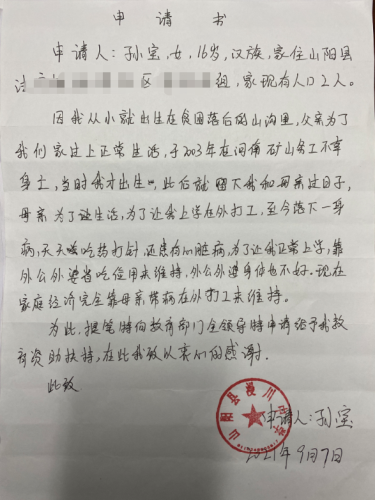 申请书
申请人:孙宝,女,16岁,汉族,家住山阳县
区 组,家现有人口2人。
因我从小就出生在贫困落后的山沟里,父亲为了
我们家过上正常生活,于2003年在河南矿山务工不幸
身亡,当时我才出生 此后就留下我和母亲过日子,
母亲为了谋生活,为了让我上学在外打工,至今落下一身
病,天天吃药打针,还患有心脏病,为了让我正常上学,靠
外公外婆省吃俭用来维持,外公外婆身体也不好。现在
家庭经济完全靠母亲带病在外打工来维持。
为此,提笔特向教育部门全领导特申请给予我教
育资助扶持,在此我致以真心的感谢。
此致
申请人:孙宝
2021年9月7日
山阳县漫川